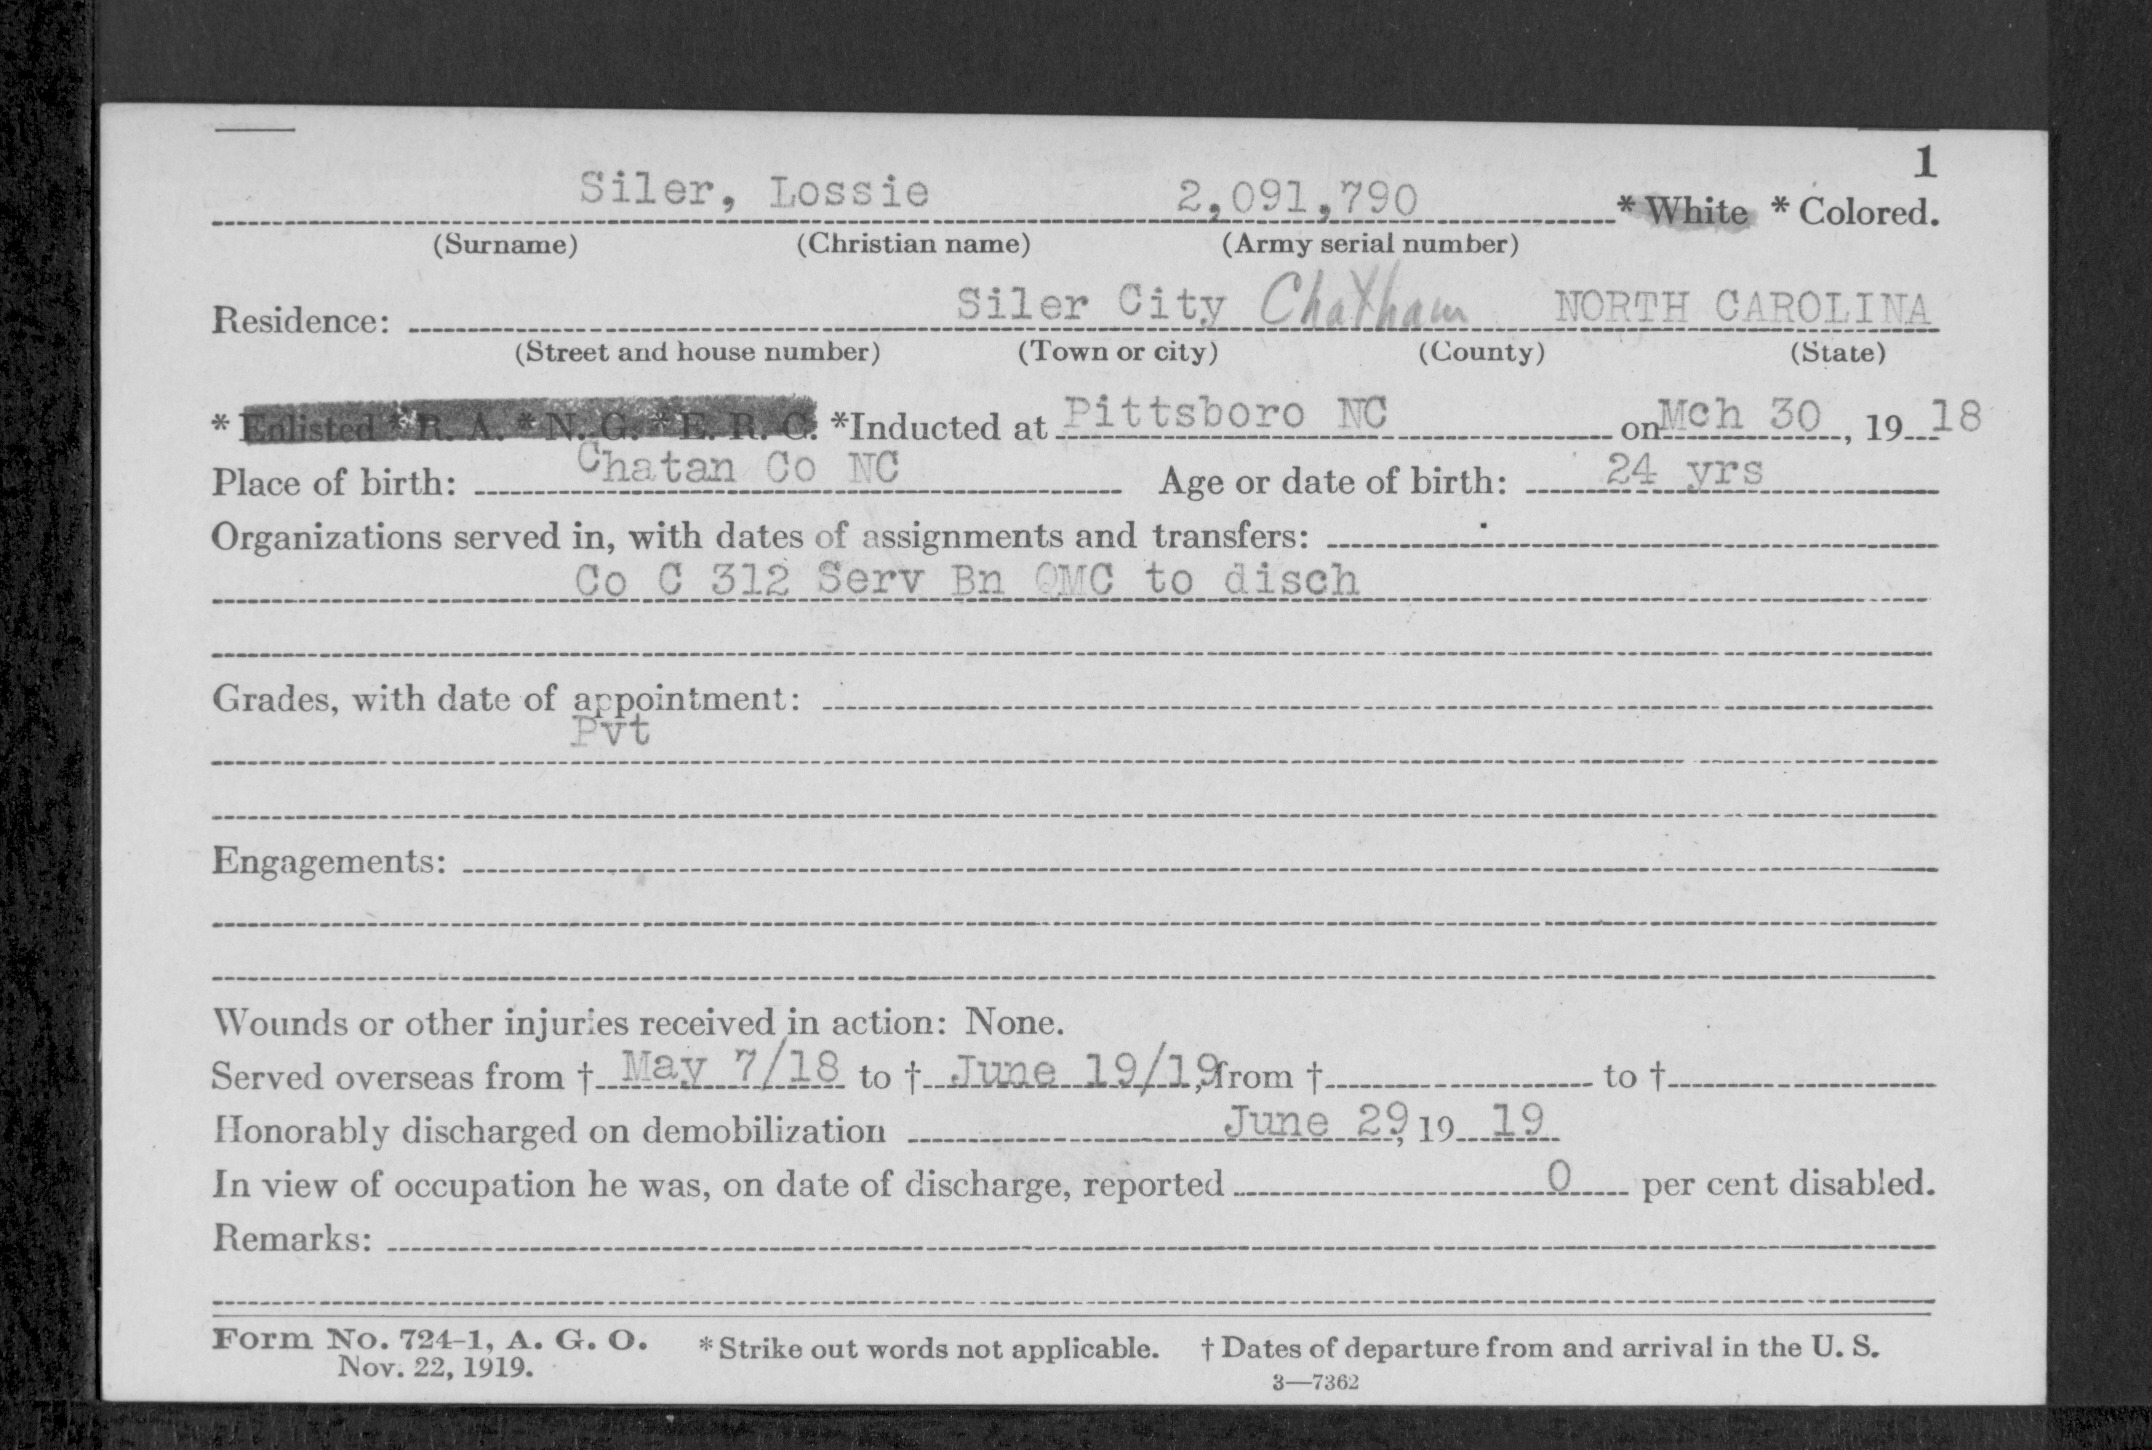 1
Siler, Lossie 2,091,790 * White * Colored.
(Surname) (Christian name) (Army serial number)
Residence: Siler City Chatham NORTH CAROLINA
(Street and house number) (Town or city) (County) (State)
* Enlisted * R. A. * N. G. * E. R. C. *Inducted at Pittsboro NC on Mch 30, 19 18
Place of birth: Chatan Co NC Age or date of birth: 24 yrs
Organizations served in, with dates of assignments and transfers:
Co C 312 Serv Bn QMC to disch
Grades, with date of appointment:
Pvt
Engagements:
Wounds or other injuries received in action: None.
Served overseas from † May 7/18 to † June 19/19, from † to †
Honorably discharged on demobilization June 29, 19 19
In view of occupation he was, on date of discharge, reported 0 per cent disabled.
Remarks:
Form No. 724-1, A. G. O. * Strike out words not applicable. † Dates of departure from and arrival in the U. S.
Nov. 22, 1919.
3—7362